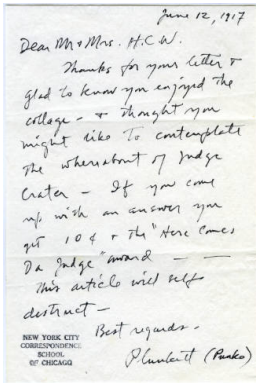 June 12, 1917
Dear Mr & Mrs. H.C.W.
Thanks for your letter &
glad to know you enjoyed the
collage - & thought you
might like to contemplate
the whereabout of Judge
Crater - If you come
up with an answer you
get 10¢ & the "Here Comes
Da Judge" award - -
This article will self
destruct -
Best regards.
Plunkett (Punko)
NEW YORK CITY
CORRESPONDENCE
SCHOOL
OF CHICAGO